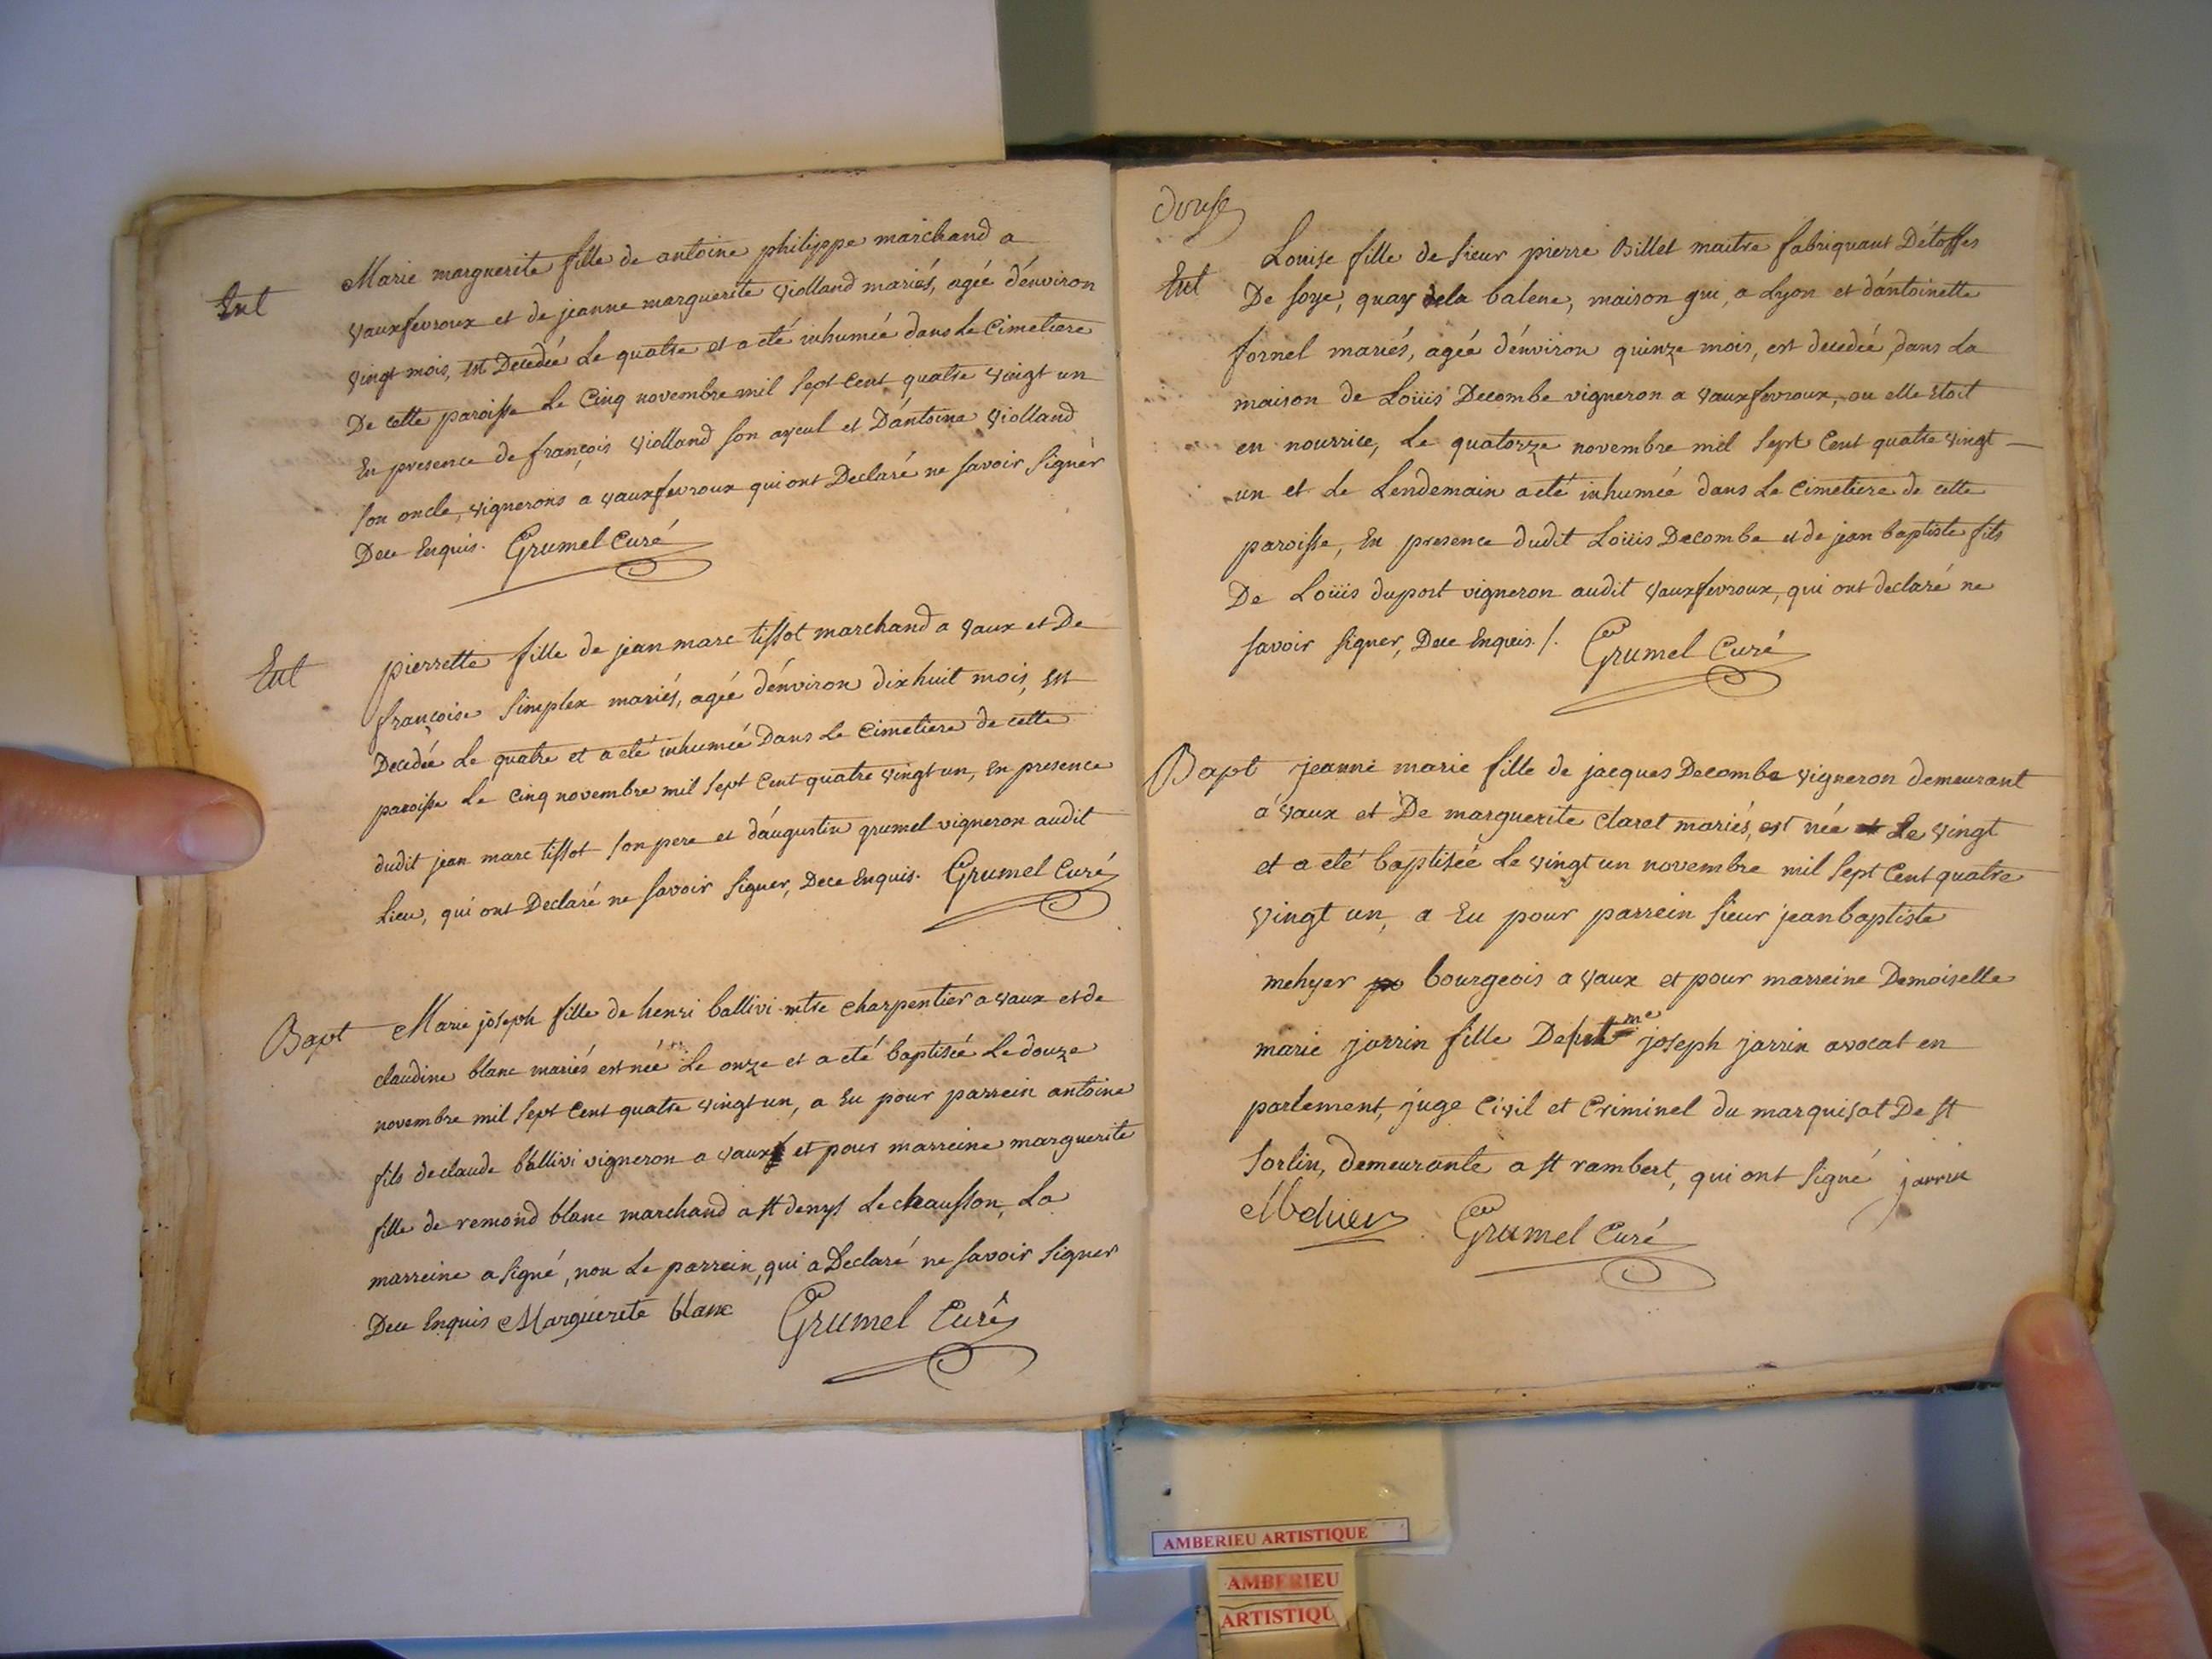 Ent
Marie marguerite fille de antoine philippe marchand a
vauxfevroux et de jeanne marguerite violland mariés, agée d'environ
vingt mois, est Decedée Le quatre et a eté inhumée dans Le Cimetiere
De cette paroisse Le Cinq novembre mil sept Cent quatre vingt un
En presence de françois violland son ayeul et D'antoine violland
son oncle, vignerons a vauxfevroux qui ont Declaré ne savoir signer
Dece Enquis. Grumel Curé
Ent
pierrette fille de jean marc tissot marchand a vaux et De
françoise simplex mariés, agée d'environ dixhuit mois, est
Decedée Le quatre et a eté inhumée Dans Le Cimetiere de cette
paroisse Le Cinq novembre mil sept Cent quatre vingt un, en presence
dudit jean marc tissot son pere et d'augustin grumel vigneron audit
Lieu, qui ont Declaré ne savoir signer, Dece Enquis. Grumel Curé
Bapt
Marie joseph fille de henri ballivi mtre charpentier a vaux et de
claudine blanc mariés est née Le onze et a eté baptisée Le douze
novembre mil sept Cent quatre vingt un, a Eu pour parrein antoine
fils de claude ballivi vigneron a vaux et pour marreine marguerite
fille de remond blanc marchand a st denys Le chausson, La
marreine a signé, non Le parrein, qui a Declaré ne savoir signer
Dece Enquis Marguerite blanc Grumel Curé
douse
Ent
Louise fille de sieur pierre Billet maitre fabriquant D'étoffes
De soye, quay dela balene, maison gui, a Lyon et d'antoinette
fornel mariés, agée d'environ quinze mois, est decedée, dans La
maison de Loüis Decombe vigneron a vauxfevroux, ou elle etoit
en nourrice, Le quatorze novembre mil sept Cent quatre vingt
un et Le Lendemain a eté inhumée dans Le Cimetiere de cette
paroisse, En presence dudit Loüis Decombe et de jean baptiste fils
De Loüis duport vigneron audit vauxfevroux, qui ont declaré ne
savoir signer, Dece Enquis./. Grumel Curé
Bapt
jeanne marie fille de jacques Decombe vigneron demeurant
a vaux et De marguerite Claret mariés, est née Le vingt
et a eté baptisée Le vingt un novembre mil sept Cent quatre
vingt un, a Eu pour parrein sieur jean baptiste
mehyer bourgeois a vaux et pour marreine Demoiselle
marie jarrin fille De me joseph jarrin avocat en
parlement, juge Civil et Criminel du marquisat De st
sorlin, demeurante a st rambert, qui ont signé jarrin
Mehier Grumel Curé
AMBERIEU ARTISTIQUE
AMBERIEU
ARTISTIQU